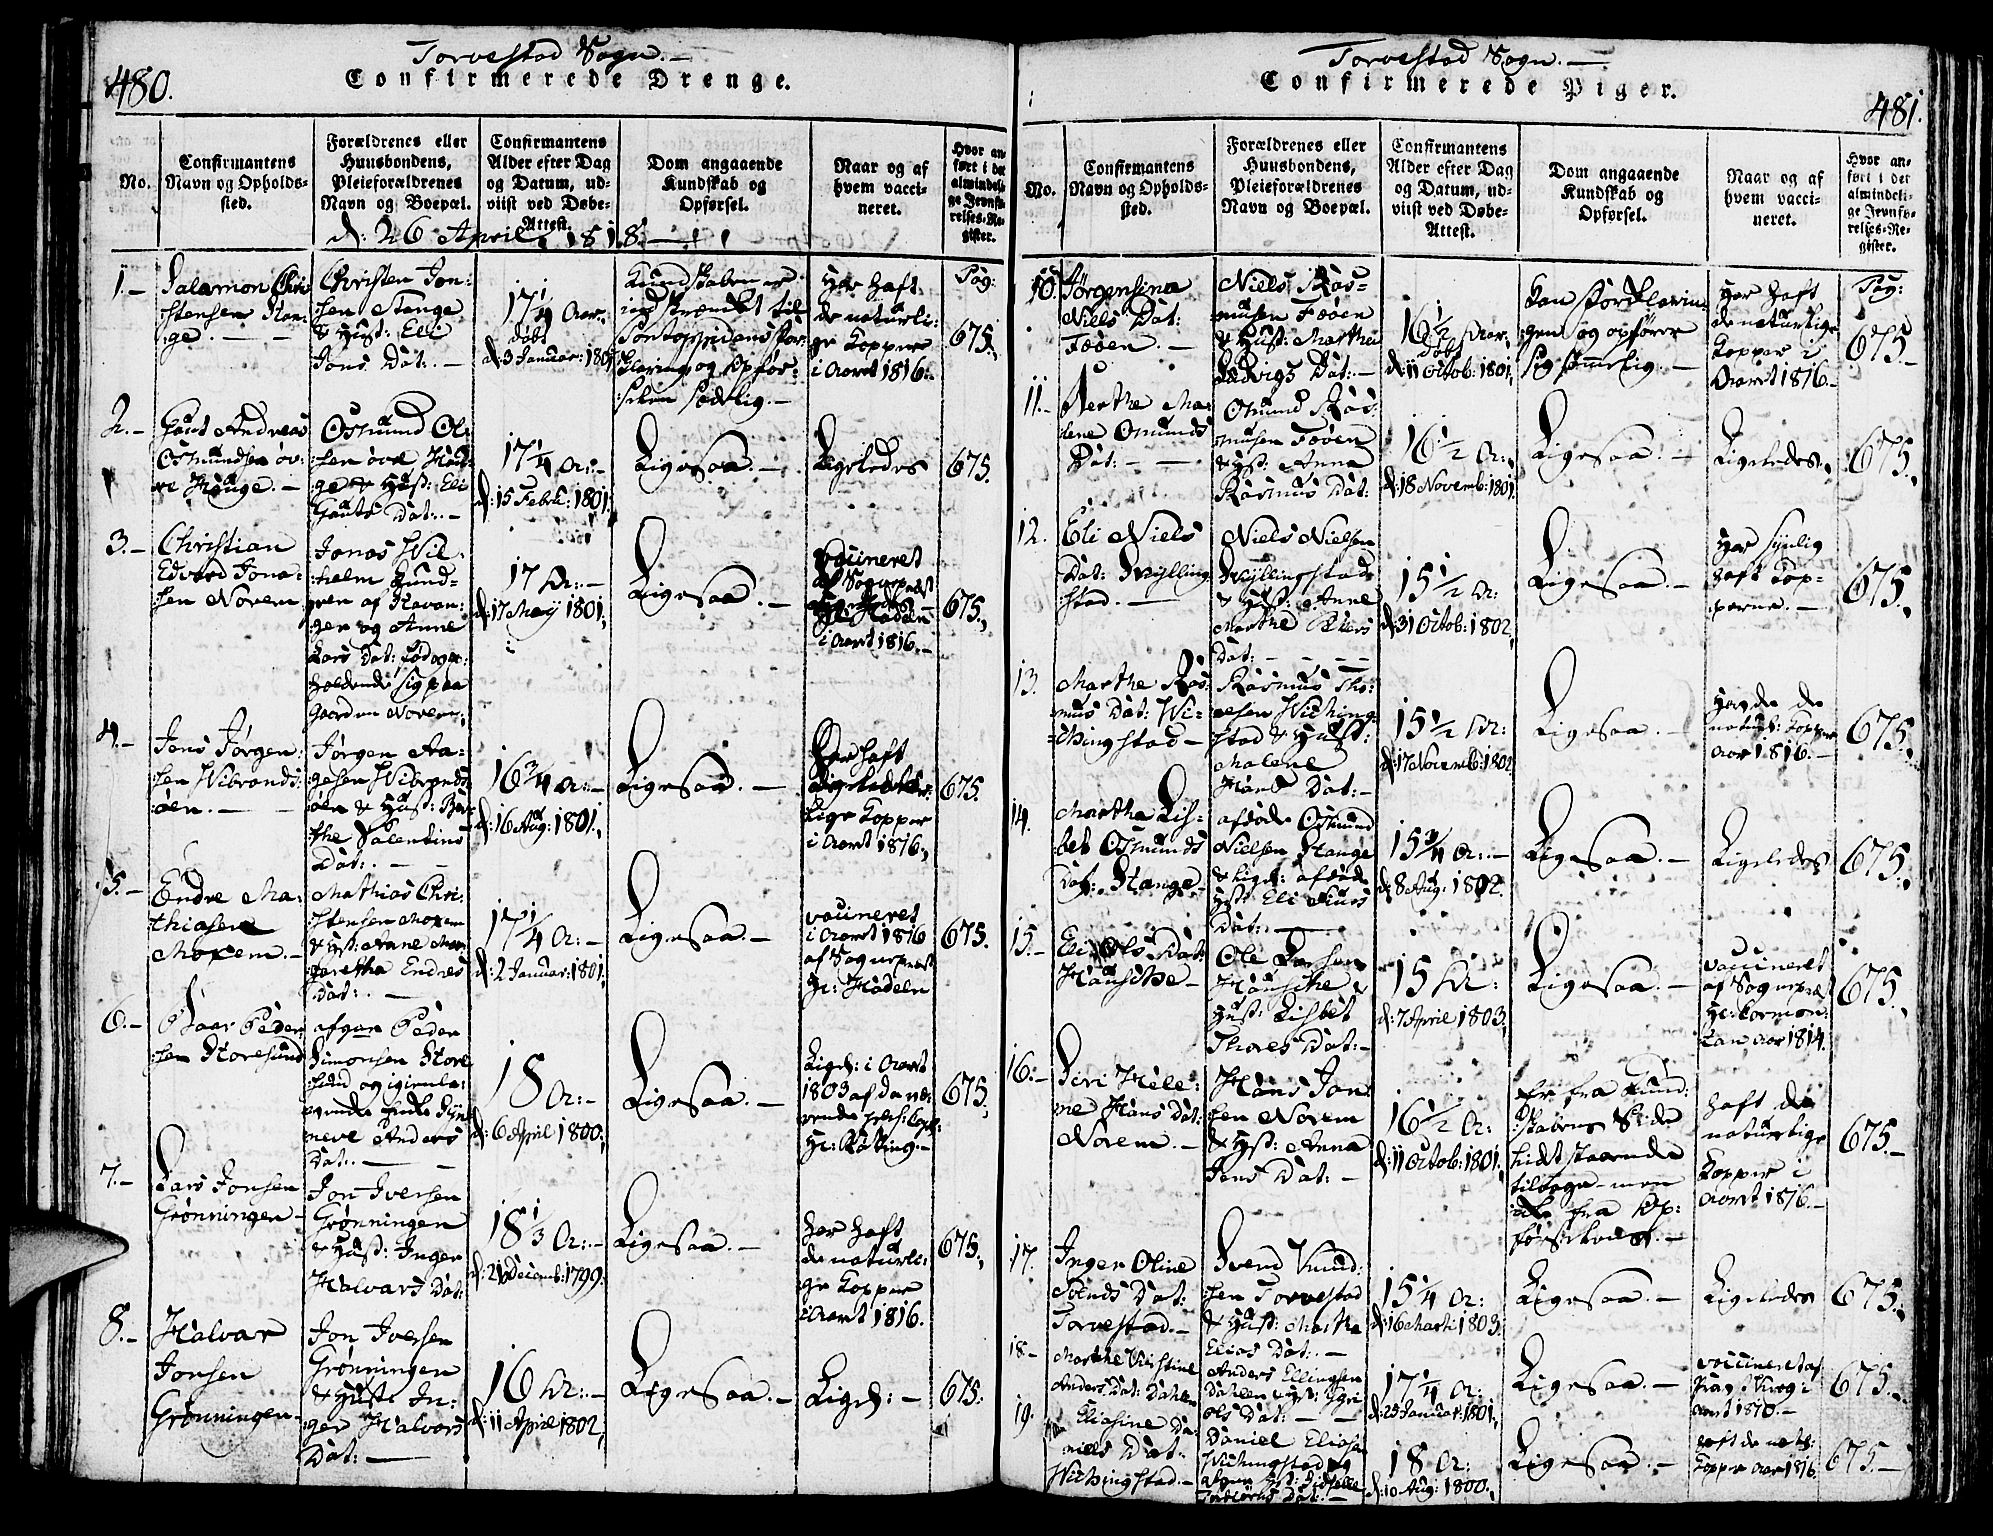 Torvestad Sogn.
480.
Confirmerede Drenge.
No.
Confirmantens
Navn og Opholds-
sted.
Forældrenes eller
Huusbondens,
Pleieforældrenes
Navn og Boepæl.
Confirmantens
Alder efter Dag
og Datum, ud-
viist ved Døbe-
Attest.
Dom angaaende
Kundskab og
Opførsel.
Naar og af
hvem vacci-
neret.
Hvor an-
ført i det
almindeli-
ge Jevnfø-
relses-Re-
gister.
d: 26 April 1818.
1.
Salamon Chri-
stensen Stan-
ge.
Christen Jon-
sen Stange
& Hust: Elli
Jons Dat:
17¼ Aar.
døbt
d: 3 Januar: 1801
Kundskaben er
Pontoppidans for-
klaring og Opfør-
selen sædelig.
Har haft
de naturli-
ge Kopper
i Aaret 1816.
Pag:
675.
2.
Gaut Andreas
Osmundsen øv-
re Hauge.
Osmund Ol-
sen øvre Hau-
ge & Hust: Eli
Gauts Dat:
17¼ Ar:
d: 15 Febr: 1801.
Ligesaa.
Ligeledes
675.
3.
Christian
Edvard Jona-
sen Norem
Jonas Wil-
helm Hund-
ven af Stavan-
ger og Anne
Lars Dat: født og op-
holdende sig paa
Gaarden Norem.
17 Ar:
d: 17 Maij 1801.
Ligesaa.
vaccineret
af Sognepræst
i Aaret 1816.
675.
4.
Jens Jørgen-
sen Wibrands-
øen.
Jørgen Aa-
gesen Wibrands-
øen & Hust: Ber-
the Salentins
Dat:
16¾ Ar:
d: 16 Aug: 1801.
Ligesaa.
Har haft
lige Kopper
i Aaret 1816.
675.
5.
Endre Ma-
thiasen
Moxem.
Mathias Chri-
stensen Moxem
& Hust: Anne Mar-
gretha Endres
Dat:
17¼ Ar:
d: 2 Januar: 1801.
Ligesaa.
vaccineret
i Aaret 1816
af Sognepræst
Hr: Hodeen
675.
6.
Peder-
sen Storesund
afgan Peder
Simonsen Store-
sund og igienle-
vende Enke Syn-
neve Anders
Dat:
18 Ar:
d: 6 April 1800.
Ligesaa.
Ligel: i Aaret
1803 af da væ-
rende
Hr:
675.
7.
Lars Jonsen
Grønningen
Jon Iversen
Grønningen
& Hust: Inger
Halvars Dat:
18⅓ Ar:
d: 21 Decemb: 1799.
Ligesaa.
Har haft
de naturli-
ge Kopper
i Aaret 1816.
675.
8.
Halvar
Jonsen
Grønningen.
Jon Iversen
Grønningen
& Hust: In-
ger Halvors
Dat:
16 Ar:
d: 11 April 1802.
Ligesaa.
Ligel:
675.
Torvestad Sogn.
481.
Confirmerede Piger.
No.
Confirmantens
Navn og Opholds-
sted.
Forældrenes eller
Huusbondens,
Pleieforældrenes
Navn og Boepæl.
Confirmantens
Alder efter Dag
og Datum, ud-
viist ved Døbe-
Attest.
Dom angaaende
Kundskab og
Opførsel.
Naar og af
hvem vacci-
neret.
Hvor an-
ført i det
almindeli-
ge Jevnfø-
relses-Re-
gister.
10.
Jørgensina
Niels Dat:
Føøen.
Niels Ras-
musen Føøen
& Hust: Martha
Ludvigs Dat:
16½ Aar:
døbt
d: 11 Octob: 1801.
Kan Forklarin-
gen og opfører
sig sømmelig.
Har haft
de naturlige
Kopper i
Aaret 1816.
Pag:
675.
11.
Berthe Ma-
lene Omunds
Dat:
Omund Ras-
musen Føøen
& Hust: Anna
Rasmus Dat:
16½ Ar:
d: 18 Novemb: 1801.
Ligesaa.
Ligeledes.
675.
12.
Eli Niels
Dat:
stad.
Niels Nielsen
& Hust: Anne
Marthe
Dat:
15½ Ar:
d: 31 Octob: 1802.
Ligesaa.
Har synlig
haft Kop-
perne.
675.
13.
Marthe Ras-
mus Dat: Wi-
chingstad
Rasmus Tho-
esen Wiching-
stad & Hust:
Malene
Hans Dat:
15½ Ar:
d: 17 Novemb: 1802
Ligesaa.
Havde de
naturl: Kopper
Aar 1816.
675.
14.
Martha Lis-
bet Osmunds
Dat: Stange
afdøde Osmund
Nielsen Stange
& Ligel: afdøde
Hust: Eli
Dat:
15¾ Ar:
d: 8 Aug: 1802.
Ligesaa.
Ligeledes
675.
15.
Eli Ols Dat:
Hauskhe
Ole Larsen
Hauskhe &
Hust: Lisbet
Thores Dat:
15 Ar:
d: 7 April 1803.
Ligesaa.
vaccineret
af Sognepræ
Hr:
Aar 1814.
675.
16.
Siri Hele-
ne Hans Dat:
Norem.
Hans Jon-
sen Norem
& Hust: Anna
Jens Dat:
16½ Ar:
d: 11 Octob: 1801.
Er fra Kund-
skabens Side
tilbage men
ikke fra Op-
førselens.
haft de
naturlige
Kopper i
Aaret 1816.
675.
17.
Inger Oline
Svends Dat:
Torvestad.
Svend Knud-
sen Torvestad
& Hust: Martha
Elias Dat:
15¼ Ar:
d: 16 Marti: 1803.
Ligesaa.
Ligeledes
675.
18.
Marthe Kirstine
Anders Dat: Dahlen
Anders Ellingsen
Dahlen Hust: Siri
Ols Dat:
17¼ Ar:
d: 25 Januar: 1801.
Ligesaa.
vaccineret af
Aaret 1810.
675.
19.
Eliasine Da-
niels Dat:
Wichingstad.
Daniel Eliasen
Wichingstad og
Dat:
18 Ar:
d: 10 Aug: 1800.
Ligesaa.
haft de natl:
Kopper Aar 1816
675.